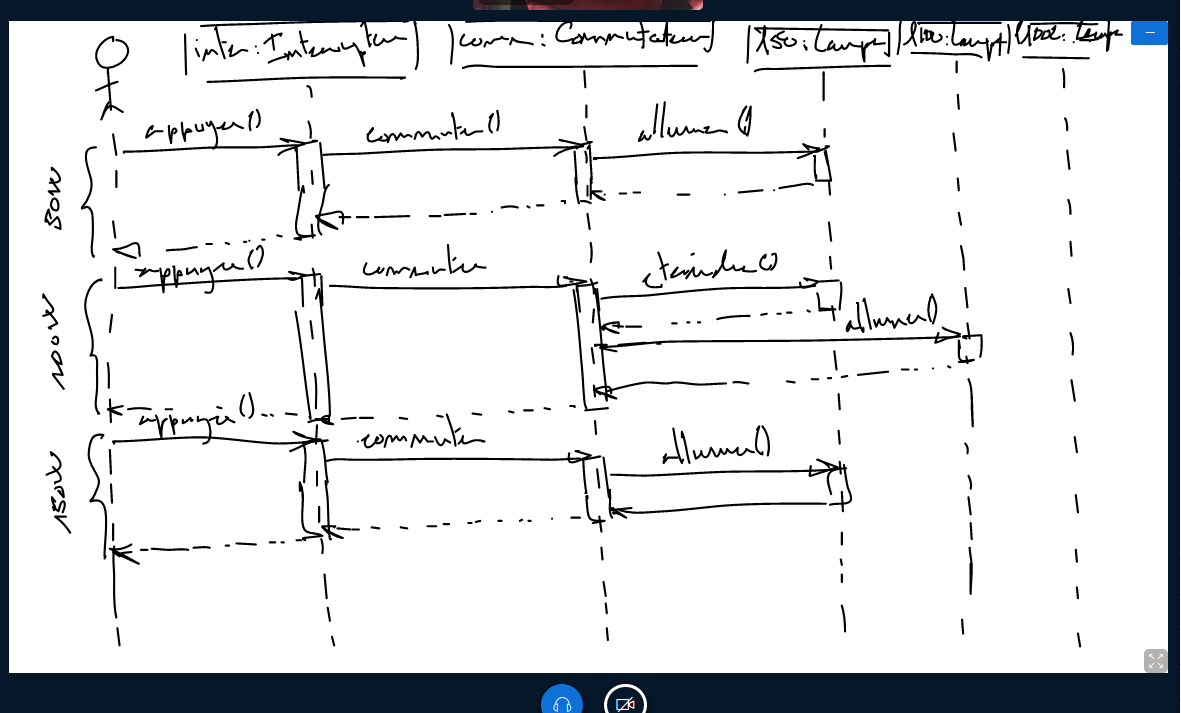 inter : Interrupteur
comm : Commutateur
l50 : Lampe
l100 : Lampe
appuyer()
commuter()
allumer()
50W
appuyer()
commuter
éteindre()
allumer()
100W
appuyer()
commuter
allumer()
150W